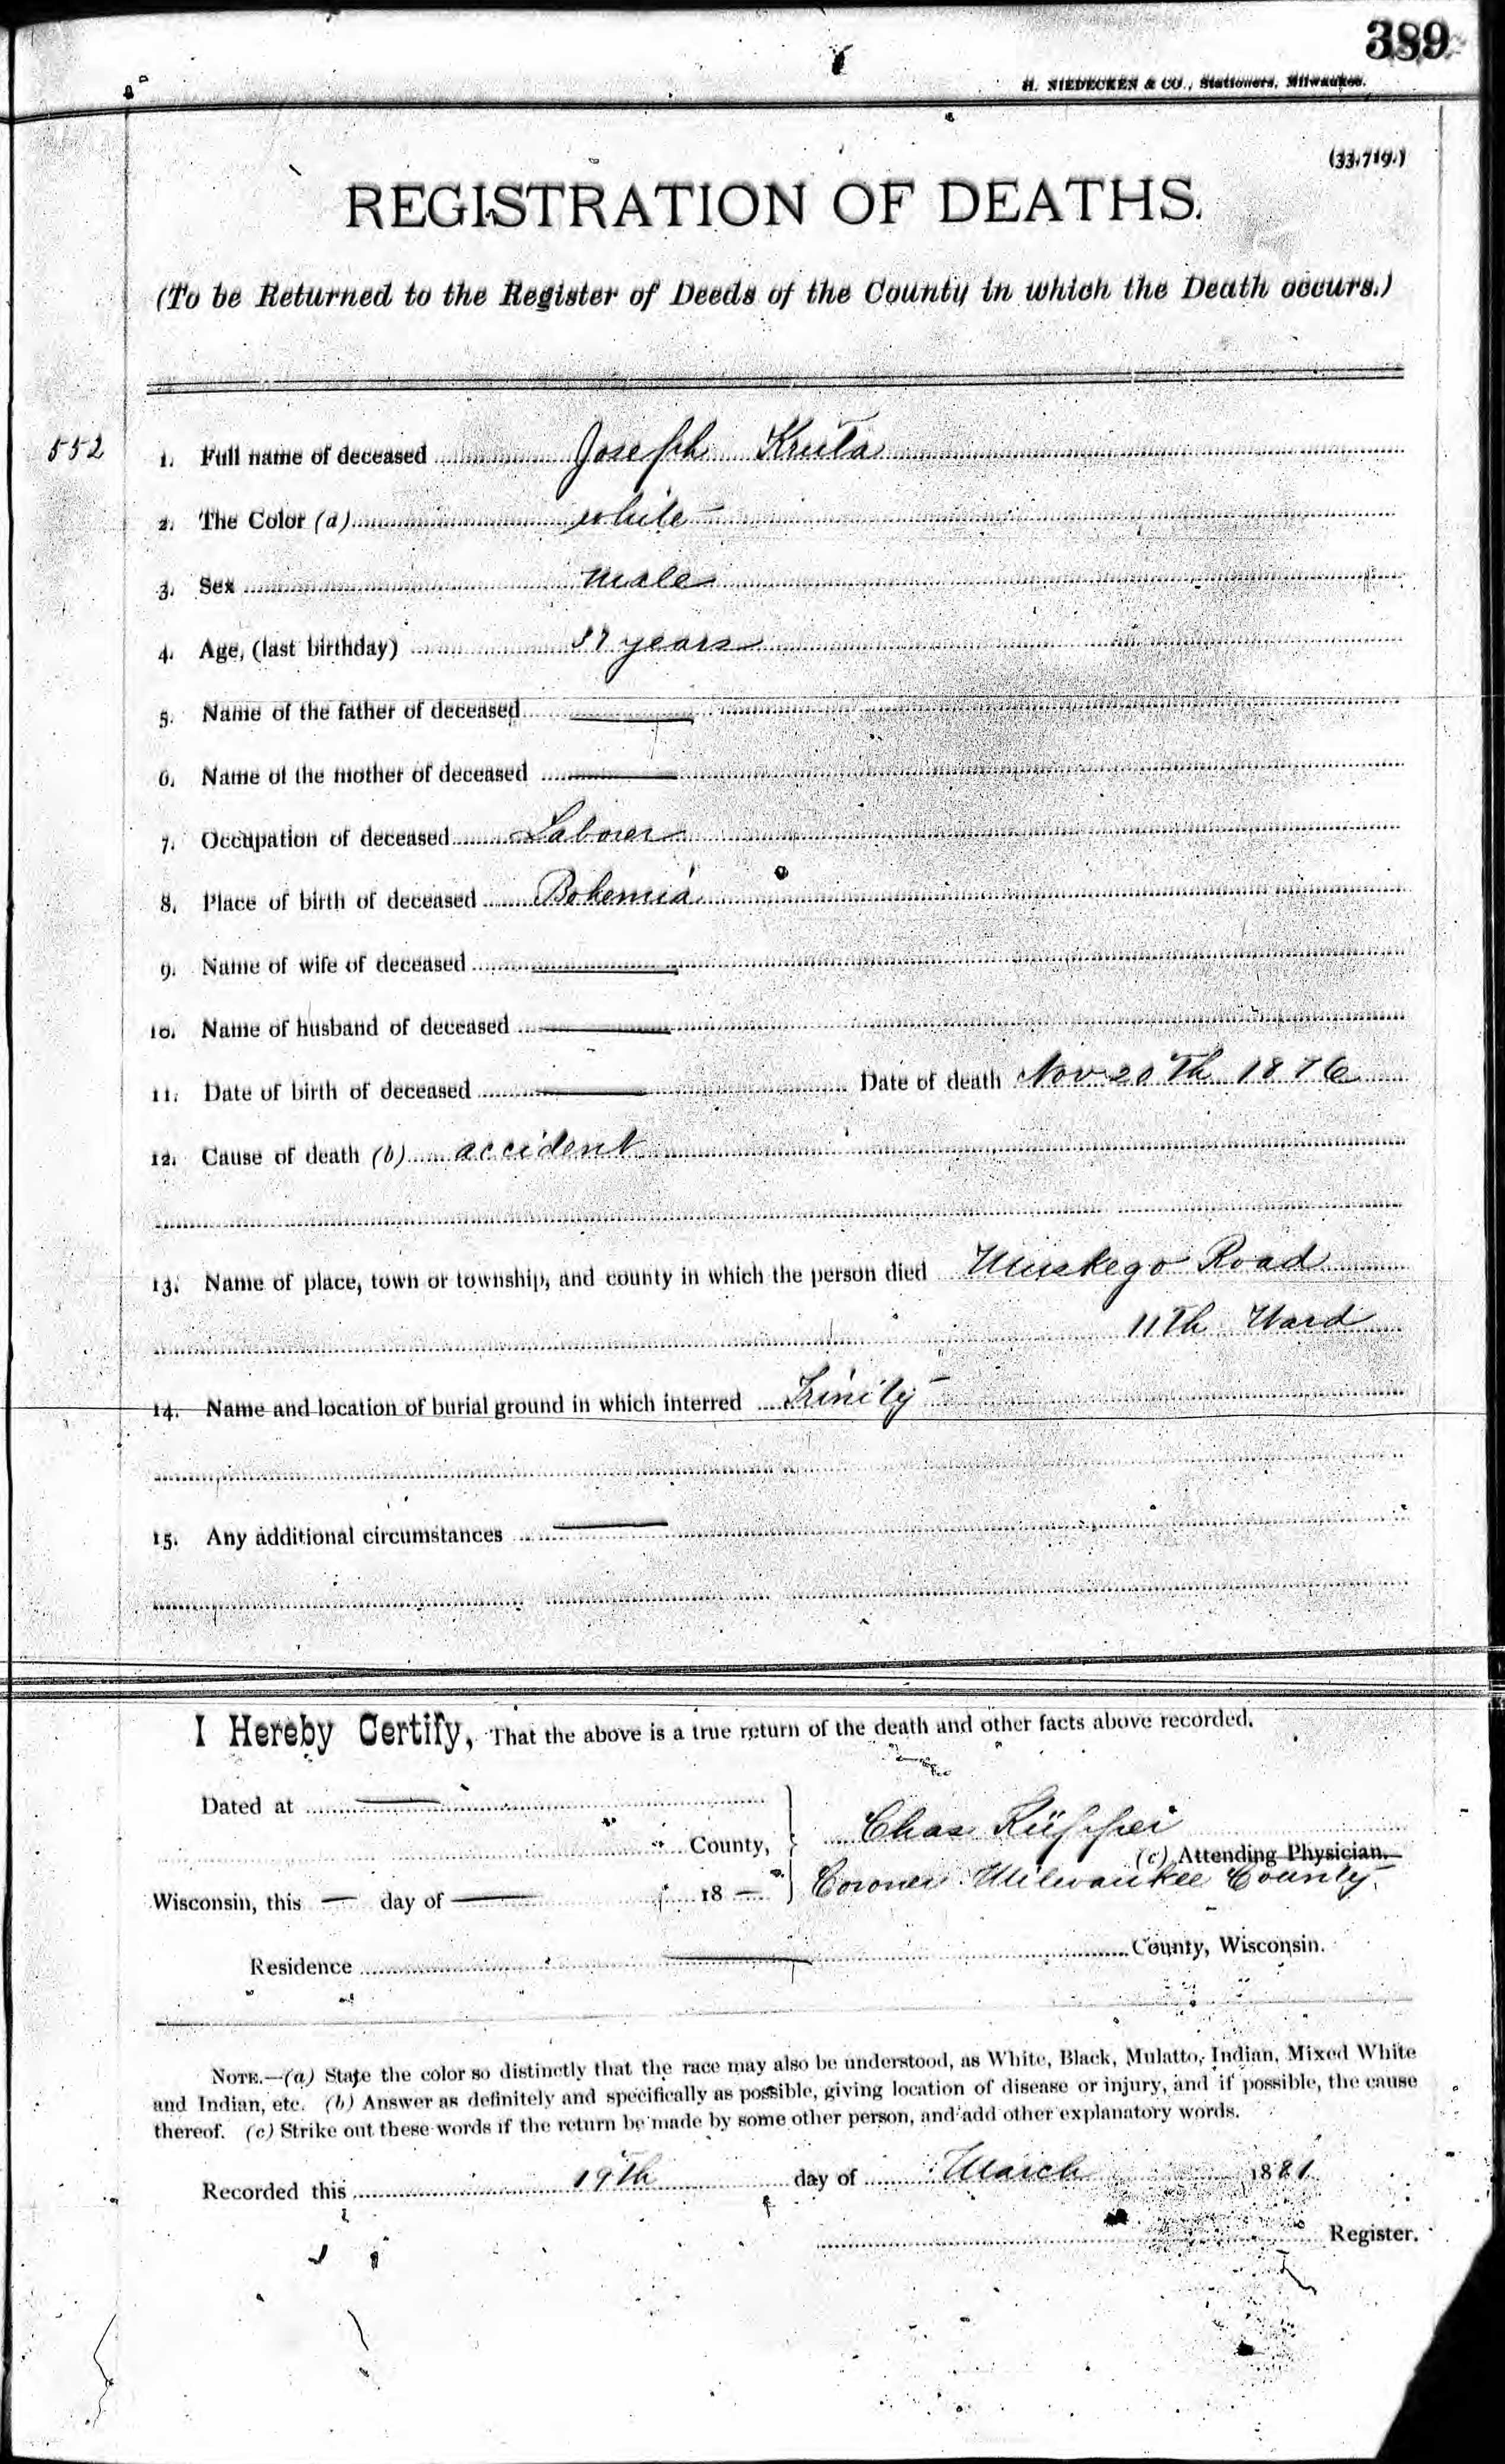 389
H. NIEDECKEN & CO., Stationers, Milwaukee.
(33,719.)
REGISTRATION OF DEATHS.
(To be Returned to the Register of Deeds of the County in which the Death occurs.)
552 1. Full name of deceased Joseph Kruta
2. The Color (a) white
3. Sex male
4. Age, (last birthday) 37 years
5. Name of the father of deceased
6. Name of the mother of deceased
7. Occupation of deceased Laborer
8. Place of birth of deceased Bohemia
9. Name of wife of deceased
10. Name of husband of deceased
11. Date of birth of deceased Date of death Nov 20th 1876
12. Cause of death (b) accident
13. Name of place, town or township, and county in which the person died Muskego Road
11th Ward
14. Name and location of burial ground in which interred Trinity
15. Any additional circumstances
I Hereby Certify, That the above is a true return of the death and other facts above recorded.
Dated at
County, Chas Küpper
(c) Attending Physician.
Wisconsin, this — day of — 18 — Coroner Milwaukee County
Residence County, Wisconsin.
NOTE.—(a) State the color so distinctly that the race may also be understood, as White, Black, Mulatto, Indian, Mixed White
and Indian, etc. (b) Answer as definitely and specifically as possible, giving location of disease or injury, and if possible, the cause
thereof. (c) Strike out these words if the return be made by some other person, and add other explanatory words.
Recorded this 19th day of March 1881
Register.